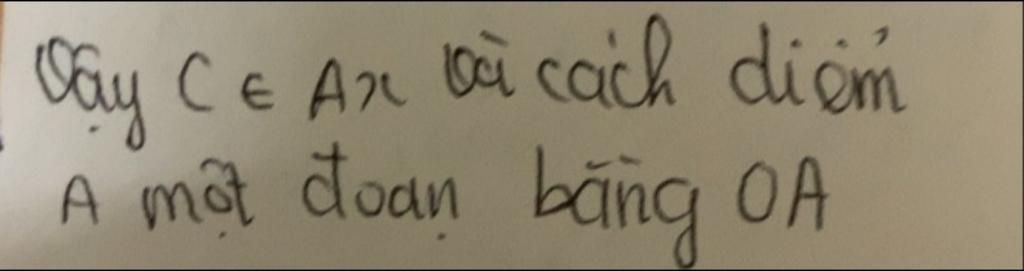 Vậy C ∈ Ax và cách điểm
A một đoạn bằng OA